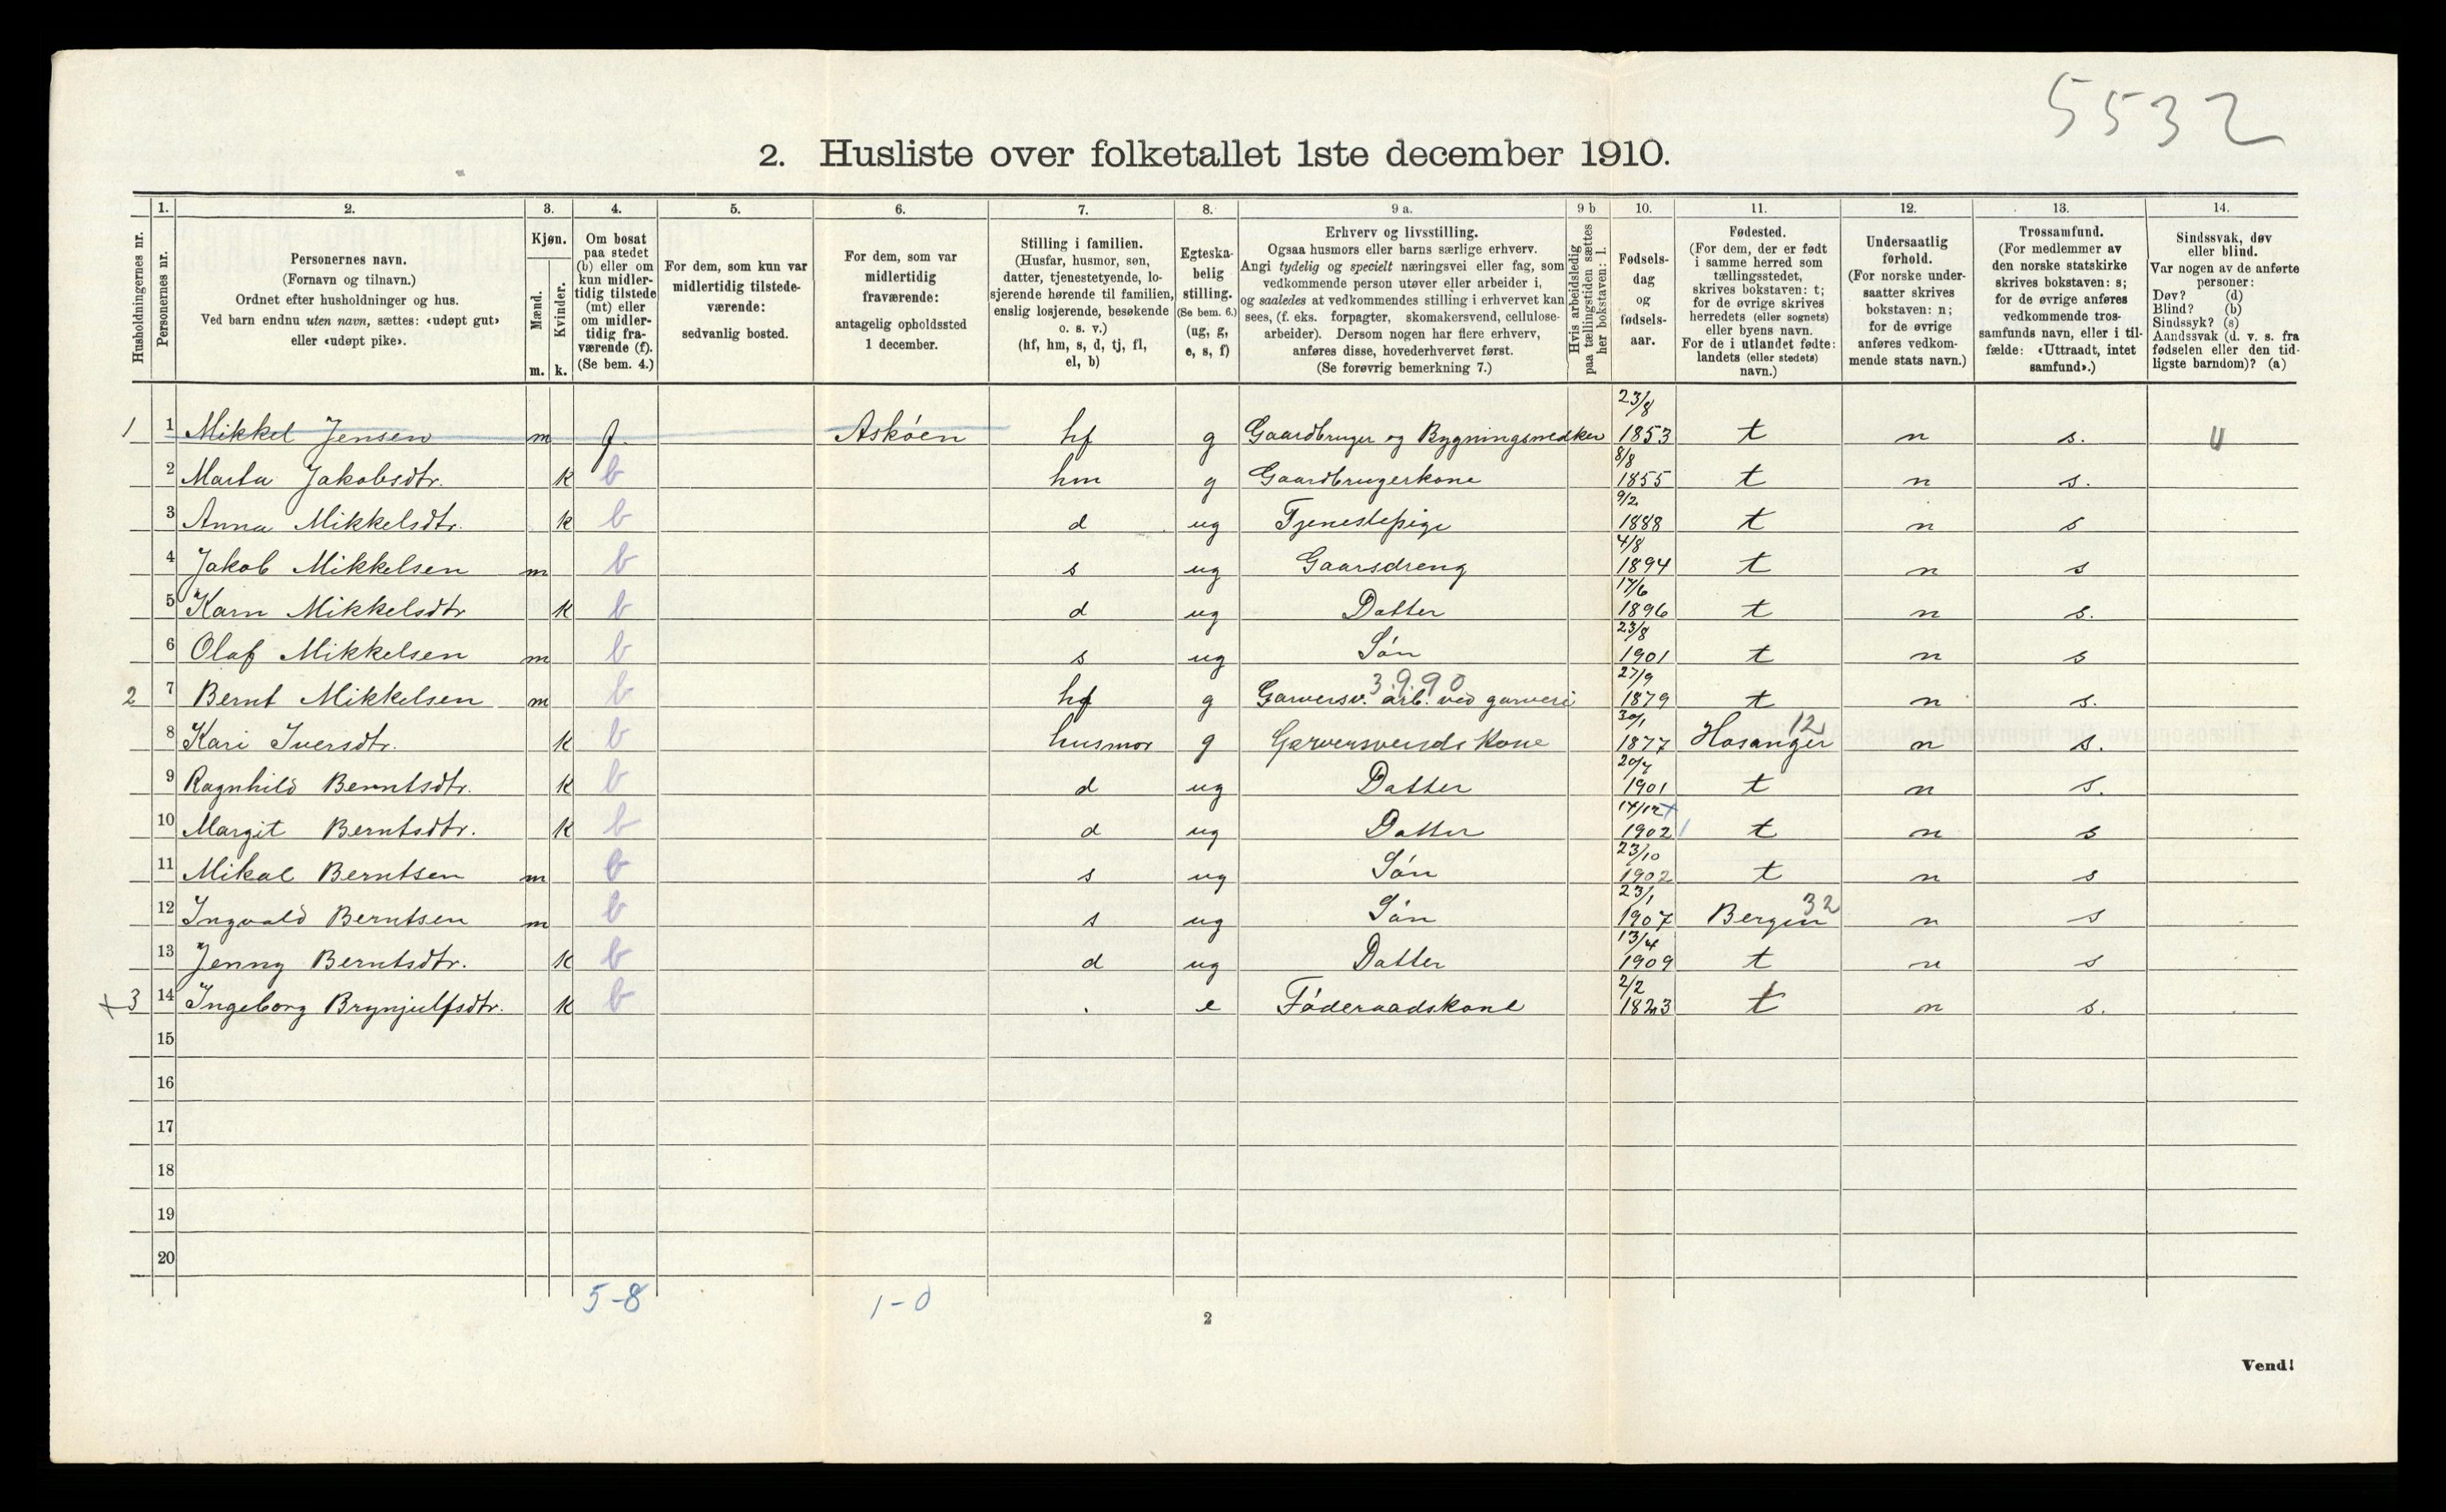 5532
2. Husliste over folketallet 1ste december 1910.
Husholdningernes nr.
1. Personernes nr.
2. Personernes navn. (Fornavn og tilnavn.) Ordnet efter husholdninger og hus. Ved barn endnu uten navn, sættes: «udøpt gut» eller «udøpt pike».
3. Kjøn. Mænd. m. Kvinder. k.
4. Om bosat paa stedet (b) eller om kun midler-tidig tilstede (mt) eller om midler-tidig fra-værende (f). (Se bem. 4.)
5. For dem, som kun var midlertidig tilstede-værende: sedvanlig bosted.
6. For dem, som var midlertidig fraværende: antagelig opholdssted 1 december.
7. Stilling i familien. (Husfar, husmor, søn, datter, tjenestetyende, lo-sjerende hørende til familien, enslig losjerende, besøkende o. s. v.) (hf, hm, s, d, tj, fl, el, b)
8. Egteska-belig stilling. (Se bem. 6.) (ug, g, e, s, f)
9 a. Erhverv og livsstilling. Ogsaa husmors eller barns særlige erhverv. Angi tydelig og specielt næringsvei eller fag, som vedkommende person utøver eller arbeider i, og saaledes at vedkommendes stilling i erhvervet kan sees, (f. eks. forpagter, skomakersvend, cellulose-arbeider). Dersom nogen har flere erhverv, anføres disse, hovederhvervet først. (Se forøvrig bemerkning 7.)
9 b Hvis arbeidsledig paa tællingstiden sættes her bokstaven: l.
10. Fødsels-dag og fødsels-aar.
11. Fødested. (For dem, der er født i samme herred som tællingsstedet, skrives bokstaven: t; for de øvrige skrives herredets (eller sognets) eller byens navn. For de i utlandet fødte: landets (eller stedets) navn.)
12. Undersaatlig forhold. (For norske under-saatter skrives bokstaven: n; for de øvrige anføres vedkom-mende stats navn.)
13. Trossamfund. (For medlemmer av den norske statskirke skrives bokstaven: s; for de øvrige anføres vedkommende tros-samfunds navn, eller i til-fælde: «Uttraadt, intet samfund».)
14. Sindssvak, døv eller blind. Var nogen av de anførte personer: Døv? (d) Blind? (b) Sindssyk? (s) Aandssvak (d. v. s. fra fødselen eller den tid-ligste barndom)? (a)
1 1 Mikkel Jensen m f. Askøen hf g Gaardbruger og Bygningssnedker 23/8 1853 t n s.
2 Marta Jakobsdtr. k b hm g Gaardbrugerkone 8/8 1855 t n s.
3 Anna Mikkelsdtr. k b d ug Tjenestepige 9/2 1888 t n s
4 Jakob Mikkelsen m b s ug Gaarsdreng 4/8 1894 t n s
5 Karn Mikkelsdtr k b d ug Datter 17/6 1896 t n s.
6 Olaf Mikkelsen m b s ug Søn 23/8 1901 t n s
2 7 Bernt Mikkelsen m b hf g Garversv. arb. ved garveri 3.9.90 27/9 1879 t n s.
8 Kari Iversdtr. k b husmor g Garversvends Kone 30/1 1877 Hosanger 12 n s.
9 Ragnhild Berntsdtr. k b d ug Datter 1901 t n s.
10 Margit Berntsdtr. k b d ug Datter 1902 t n s
11 Mikal Berntsen m b s ug Søn 23/10 1902 t n s
12 Ingvald Berntsen m b s ug Søn 23/1 1907 Bergen 32 n s
13 Jenny Berntsdtr. k b d ug Datter 13/4 1909 t n s
3 14 Ingeborg Brynjulfsdtr. k b e Føderaadskone 2/2 1823 t n s.
15
16
17
18
19
20
5-8 1-0
2
Vend!